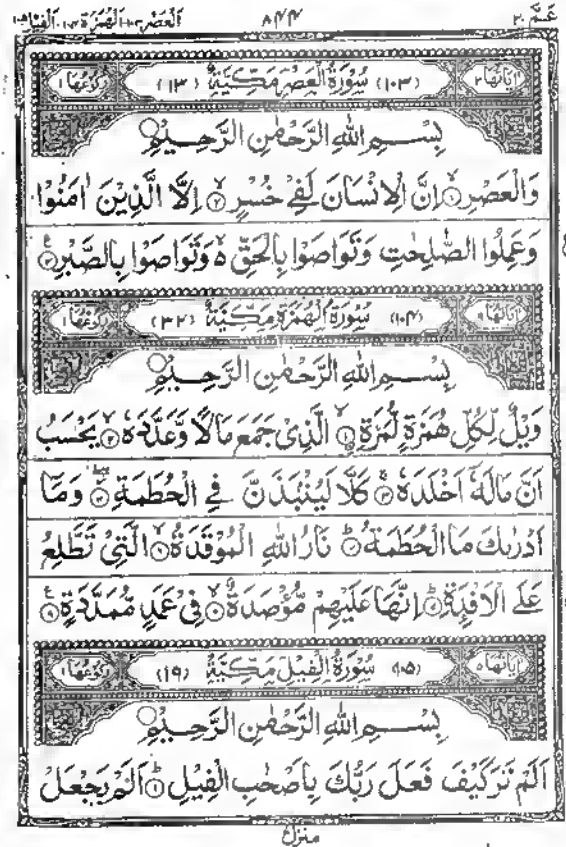 عَمَّ ٣٠ ٨٤٤ اَلْعَصْر ١٠٣ اَلْهُمَزَة ١٠٤ اَلْفِيْل ١٠٥
اٰيَاتُهَا ٣ (١٠٣) سُوْرَةُ الْعَصْرِ مَكِّيَّةٌ (١٣) رُكُوْعُهَا ١
بِسْــــمِ اللهِ الرَّحْمٰنِ الرَّحِــيْمِ
وَالْعَصْرِۙ‏﴿۱﴾ اِنَّ الْاِنْسَانَ لَفِىْ خُسْرٍۙ‏﴿۲﴾ اِلَّا الَّذِيْنَ اٰمَنُوْا
وَعَمِلُوا الصّٰلِحٰتِ وَتَوَاصَوْا بِالْحَقِّ ۙ وَتَوَاصَوْا بِالصَّبْرِ‏﴿۳﴾
اٰيَاتُهَا ٩ (١٠٤) سُوْرَةُ الْهُمَزَةِ مَكِّيَّةٌ (٣٢) رُكُوْعُهَا ١
بِسْــــمِ اللهِ الرَّحْمٰنِ الرَّحِــيْمِ
وَيْلٌ لِّكُلِّ هُمَزَةٍ لُّمَزَةِۙ‏﴿۱﴾ اۨلَّذِىْ جَمَعَ مَالًا وَّعَدَّدَهٗۙ‏﴿۲﴾ يَحْسَبُ
اَنَّ مَالَهٗۤ اَخْلَدَهٗۚ‏﴿۳﴾ كَلَّا لَيُنْۢبَذَنَّ فِى الْحُطَمَةِۖ‏﴿۴﴾ وَمَاۤ
اَدْرٰىكَ مَا الْحُطَمَةُؕ‏﴿۵﴾ نَارُ اللهِ الْمُوْقَدَةُۙ‏﴿۶﴾ الَّتِىْ تَطَّلِعُ
عَلَى الْاَفْـِٕدَةِؕ‏﴿۷﴾ اِنَّهَا عَلَيْهِمْ مُّؤْصَدَةٌۙ‏﴿۸﴾ فِىْ عَمَدٍ مُّمَدَّدَةٍ‏﴿۹﴾
اٰيَاتُهَا ٥ (١٠٥) سُوْرَةُ الْفِيْلِ مَكِّيَّةٌ (١٩) رُكُوْعُهَا ١
بِسْــــمِ اللهِ الرَّحْمٰنِ الرَّحِــيْمِ
اَلَمْ تَرَ كَيْفَ فَعَلَ رَبُّكَ بِاَصْحٰبِ الْفِيْلِؕ‏﴿۱﴾ اَلَمْ يَجْعَلْ
منزل